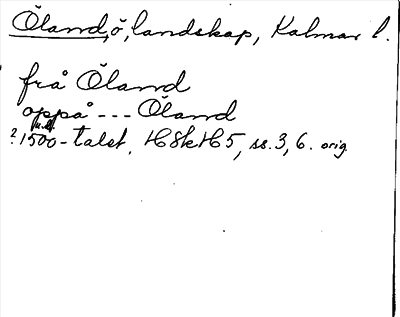 Öland, ö, landskap, Kalmar l.
frå Öland
oppå --- Öland
? 1500-talet. H8kH5, ss. 3, 6. orig.